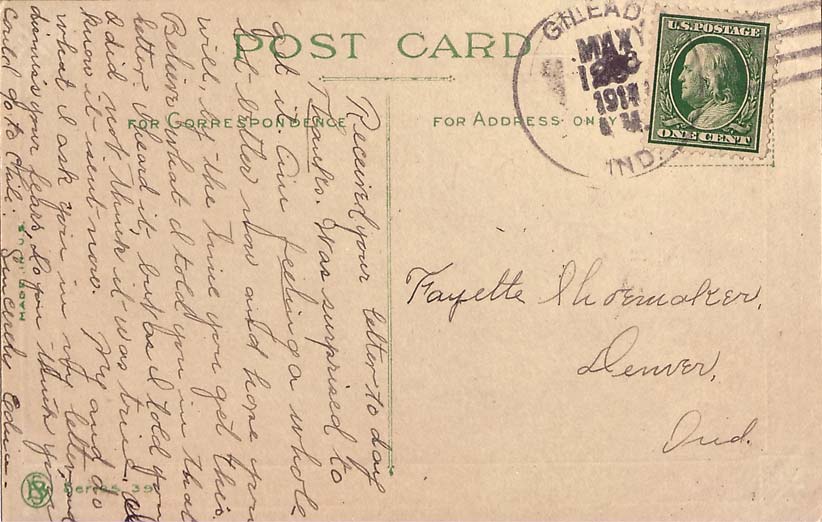 POST CARD
FOR CORRESPONDENCE
FOR ADDRESS ONLY
GILEAD,
MAY
1911
M.
IND.
U.S. POSTAGE
ONE CENT
Fayette Shoemaker,
Denver,
Ind.
Received your letter to day
Thanks. Was surprised to
get it. Am feeling a whole
lot better now and hope you
will, by the time you get this.
Believe what I told you in that
letter I heard it, but as I told you
I did not think it was true. I
know it isent now. My and do
what I ask you in my letter, and
dismis your fears. Do you think you
could go to Chili. Sincerely Edna-
Series 39